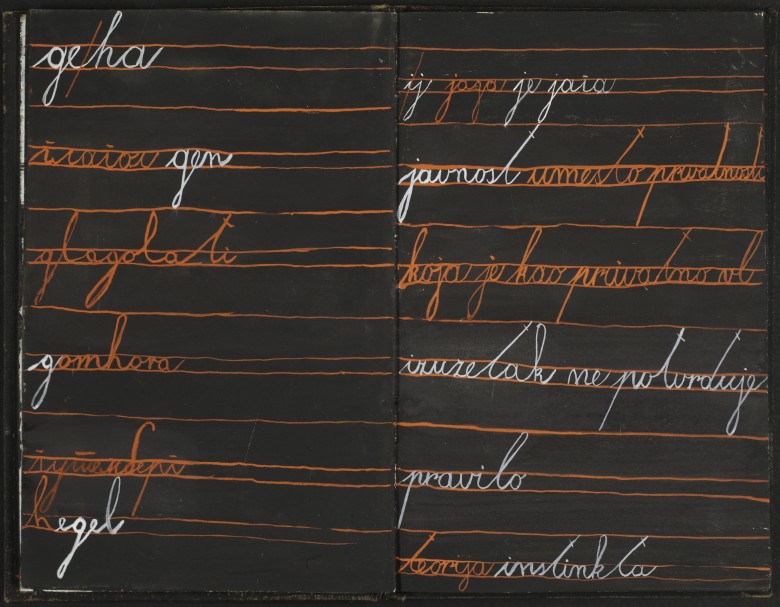 ge/ha
gen
glagolati
gomhora
hegel
ij jaja je jaia
javnost umesto privatnosti
koja je kao privatno vl
izuzetak ne potvrduje
pravilo
teorija instinkta